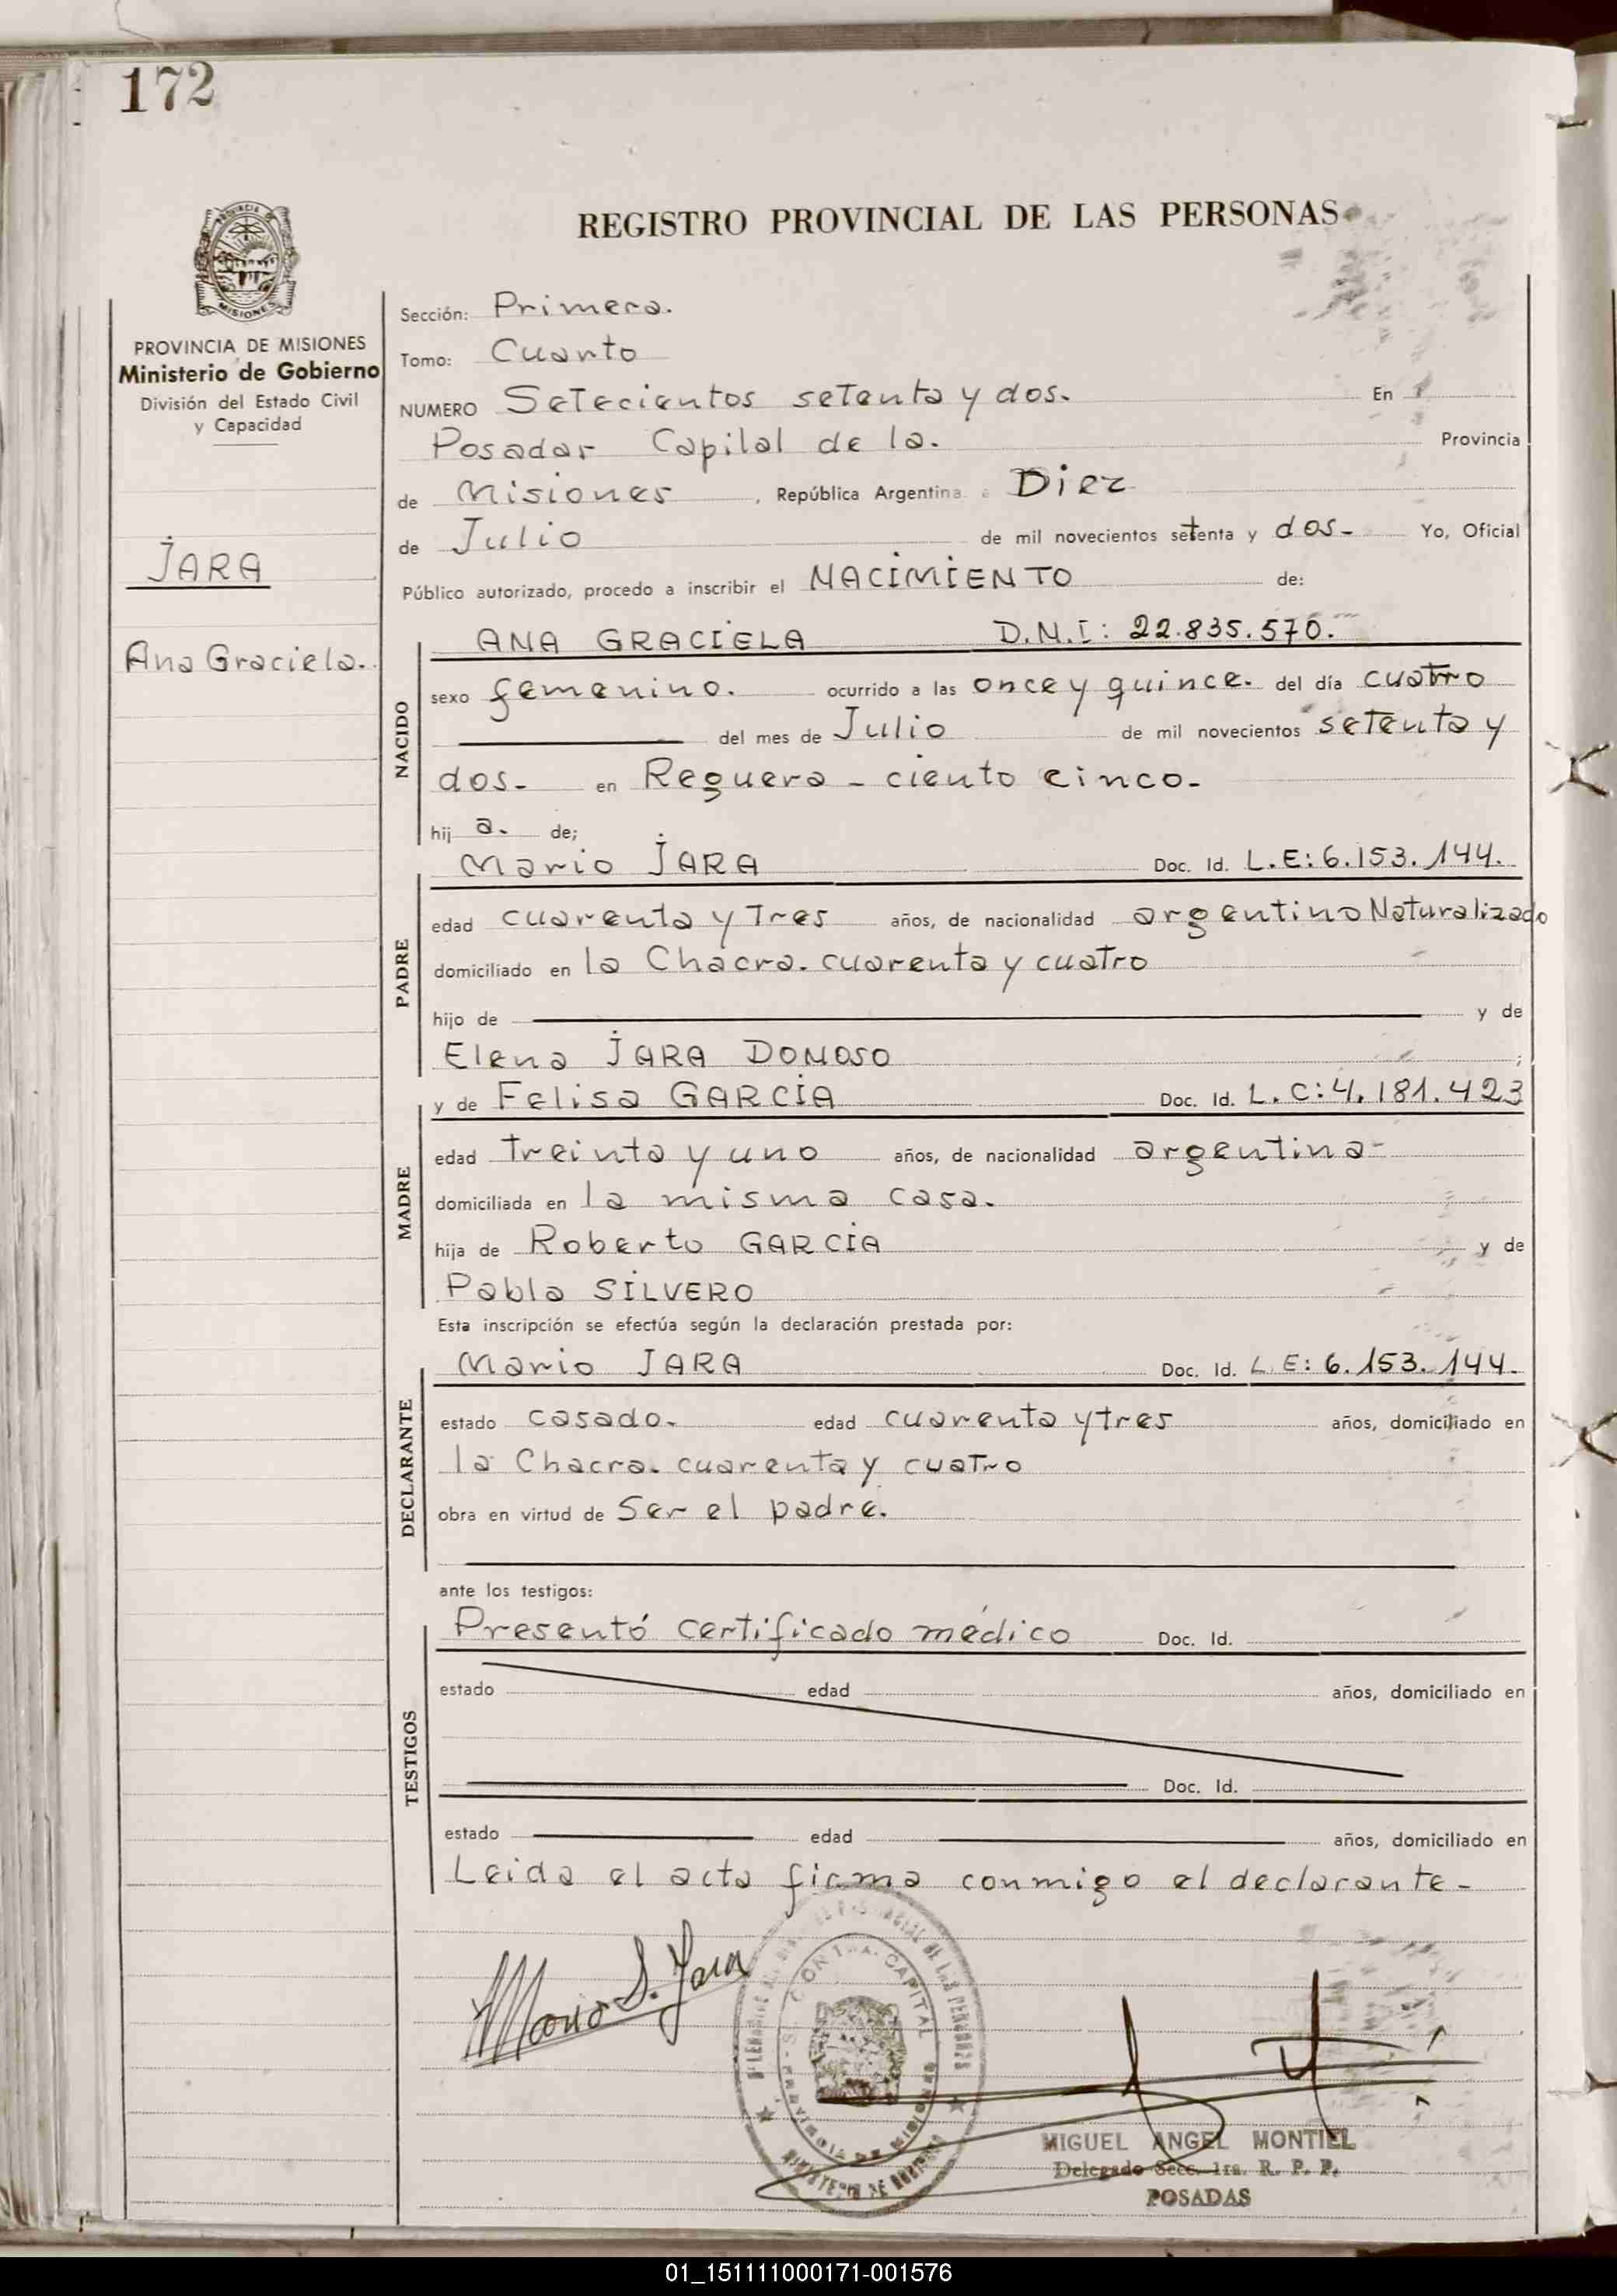 172
REGISTRO PROVINCIAL DE LAS PERSONAS
MISIONES
PROVINCIA DE MISIONES
Ministerio de Gobierno
División del Estado Civil
y Capacidad
JARA
Ana Graciela.
Sección: Primera.
Tomo: Cuarto
NUMERO Setecientos setenta y dos. En
Posadas Capital de la. Provincia
de Misiones, República Argentina a Diez
de Julio de mil novecientos setenta y dos- Yo, Oficial
Público autorizado, procedo a inscribir el NACIMIENTO de:
NACIDO
ANA GRACIELA D.N.I: 22.835.570.
sexo femenino. ocurrido a las once y quince. del día cuatro
del mes de Julio de mil novecientos setenta y
dos- en Reguera - ciento cinco-
hij a. de;
PADRE
Mario JARA Doc. Id. L.E: 6.153.144.
edad cuarenta y tres años, de nacionalidad argentino Naturalizado
domiciliado en la Chacra. cuarenta y cuatro
hijo de y de
Elena JARA DONOSO ;
MADRE
y de Felisa GARCIA Doc. Id. L.C: 4.181.423
edad treinta y uno años, de nacionalidad argentina-
domiciliada en la misma casa.
hija de Roberto GARCIA y de
Pabla SILVERO
Esta inscripción se efectúa según la declaración prestada por:
DECLARANTE
Mario JARA Doc. Id. L.E: 6.153.144.
estado casado. edad cuarenta y tres años, domiciliado en
la Chacra. cuarenta y cuatro
obra en virtud de Ser el padre.
ante los testigos:
TESTIGOS
Presentó certificado médico Doc. Id.
estado edad años, domiciliado en
Doc. Id.
estado edad años, domiciliado en
Leida el acta firma conmigo el declarante-
Mario S. Jara
CAPITAL
PROVINCIA DE MISIONES
MIGUEL ANGEL MONTIEL
Delegado Secc. 1ra. R. P. P.
POSADAS
01_151111000171-001576